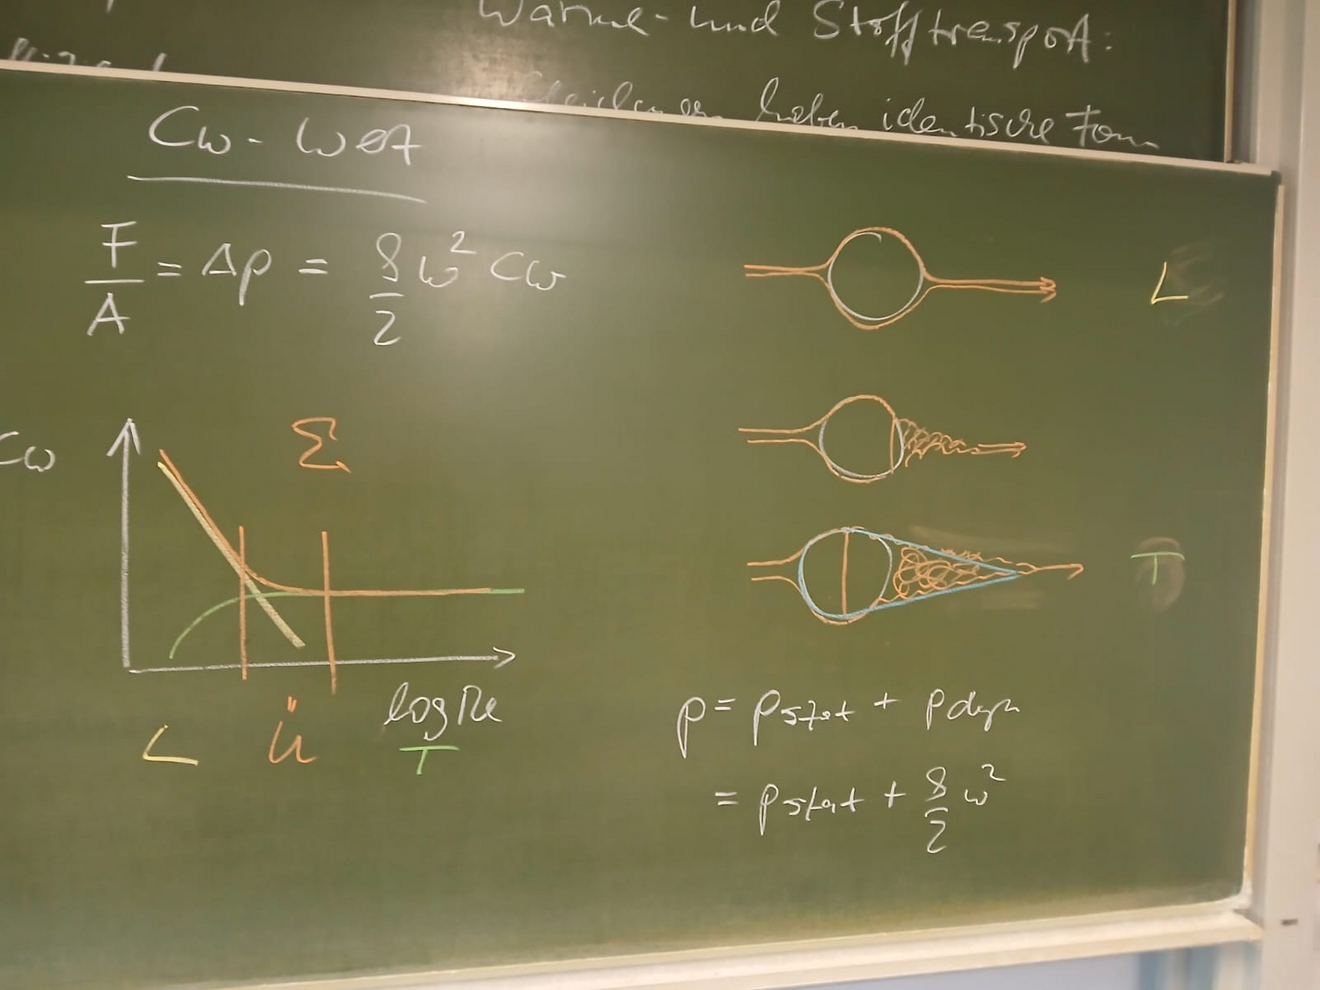 Wärme- und Stofftransport:
haben identische Form
Cw-Wert
F/A = Δp = ρ/2 w² Cw
L
Cw
Σ
T
log Re
L Ü T
p = pstat + pdyn
= pstat + ρ/2 w²